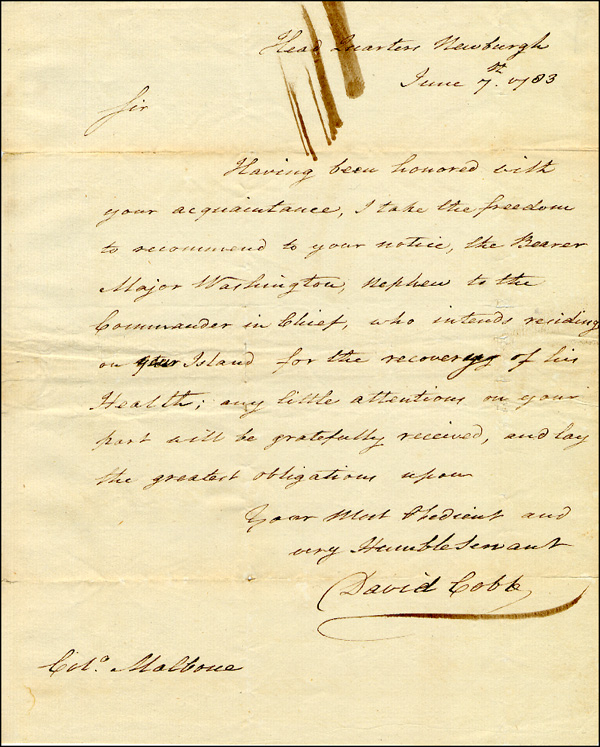 Head Quarters Newburgh
June 7th. 1783
Sir
Having been honored with
your acquaintance, I take the freedom
to recommend to your notice, the Bearer
Major Washington, Nephew to the
Commander in Chief, who intends residing
on your Island for the recovery of his
Health; any little attentions on your
part will be gratefully received, and lay
the greatest obligations upon
Your Most Obedient and
very Humble Servant
David Cobb
Colo. Malbone